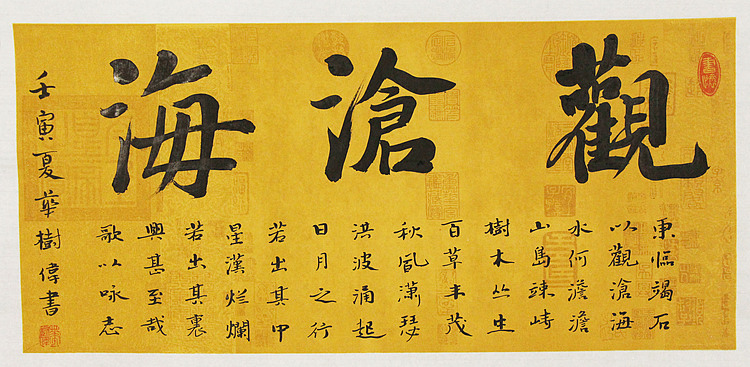 觀滄海
東臨碣石
以觀滄海
水何澹澹
山島竦峙
樹木丛生
百草丰茂
秋風瀟瑟
洪波涌起
日月之行
若出其中
星漢烂爛
若出其裏
興甚至哉
歌以咏志
壬寅夏華樹偉書